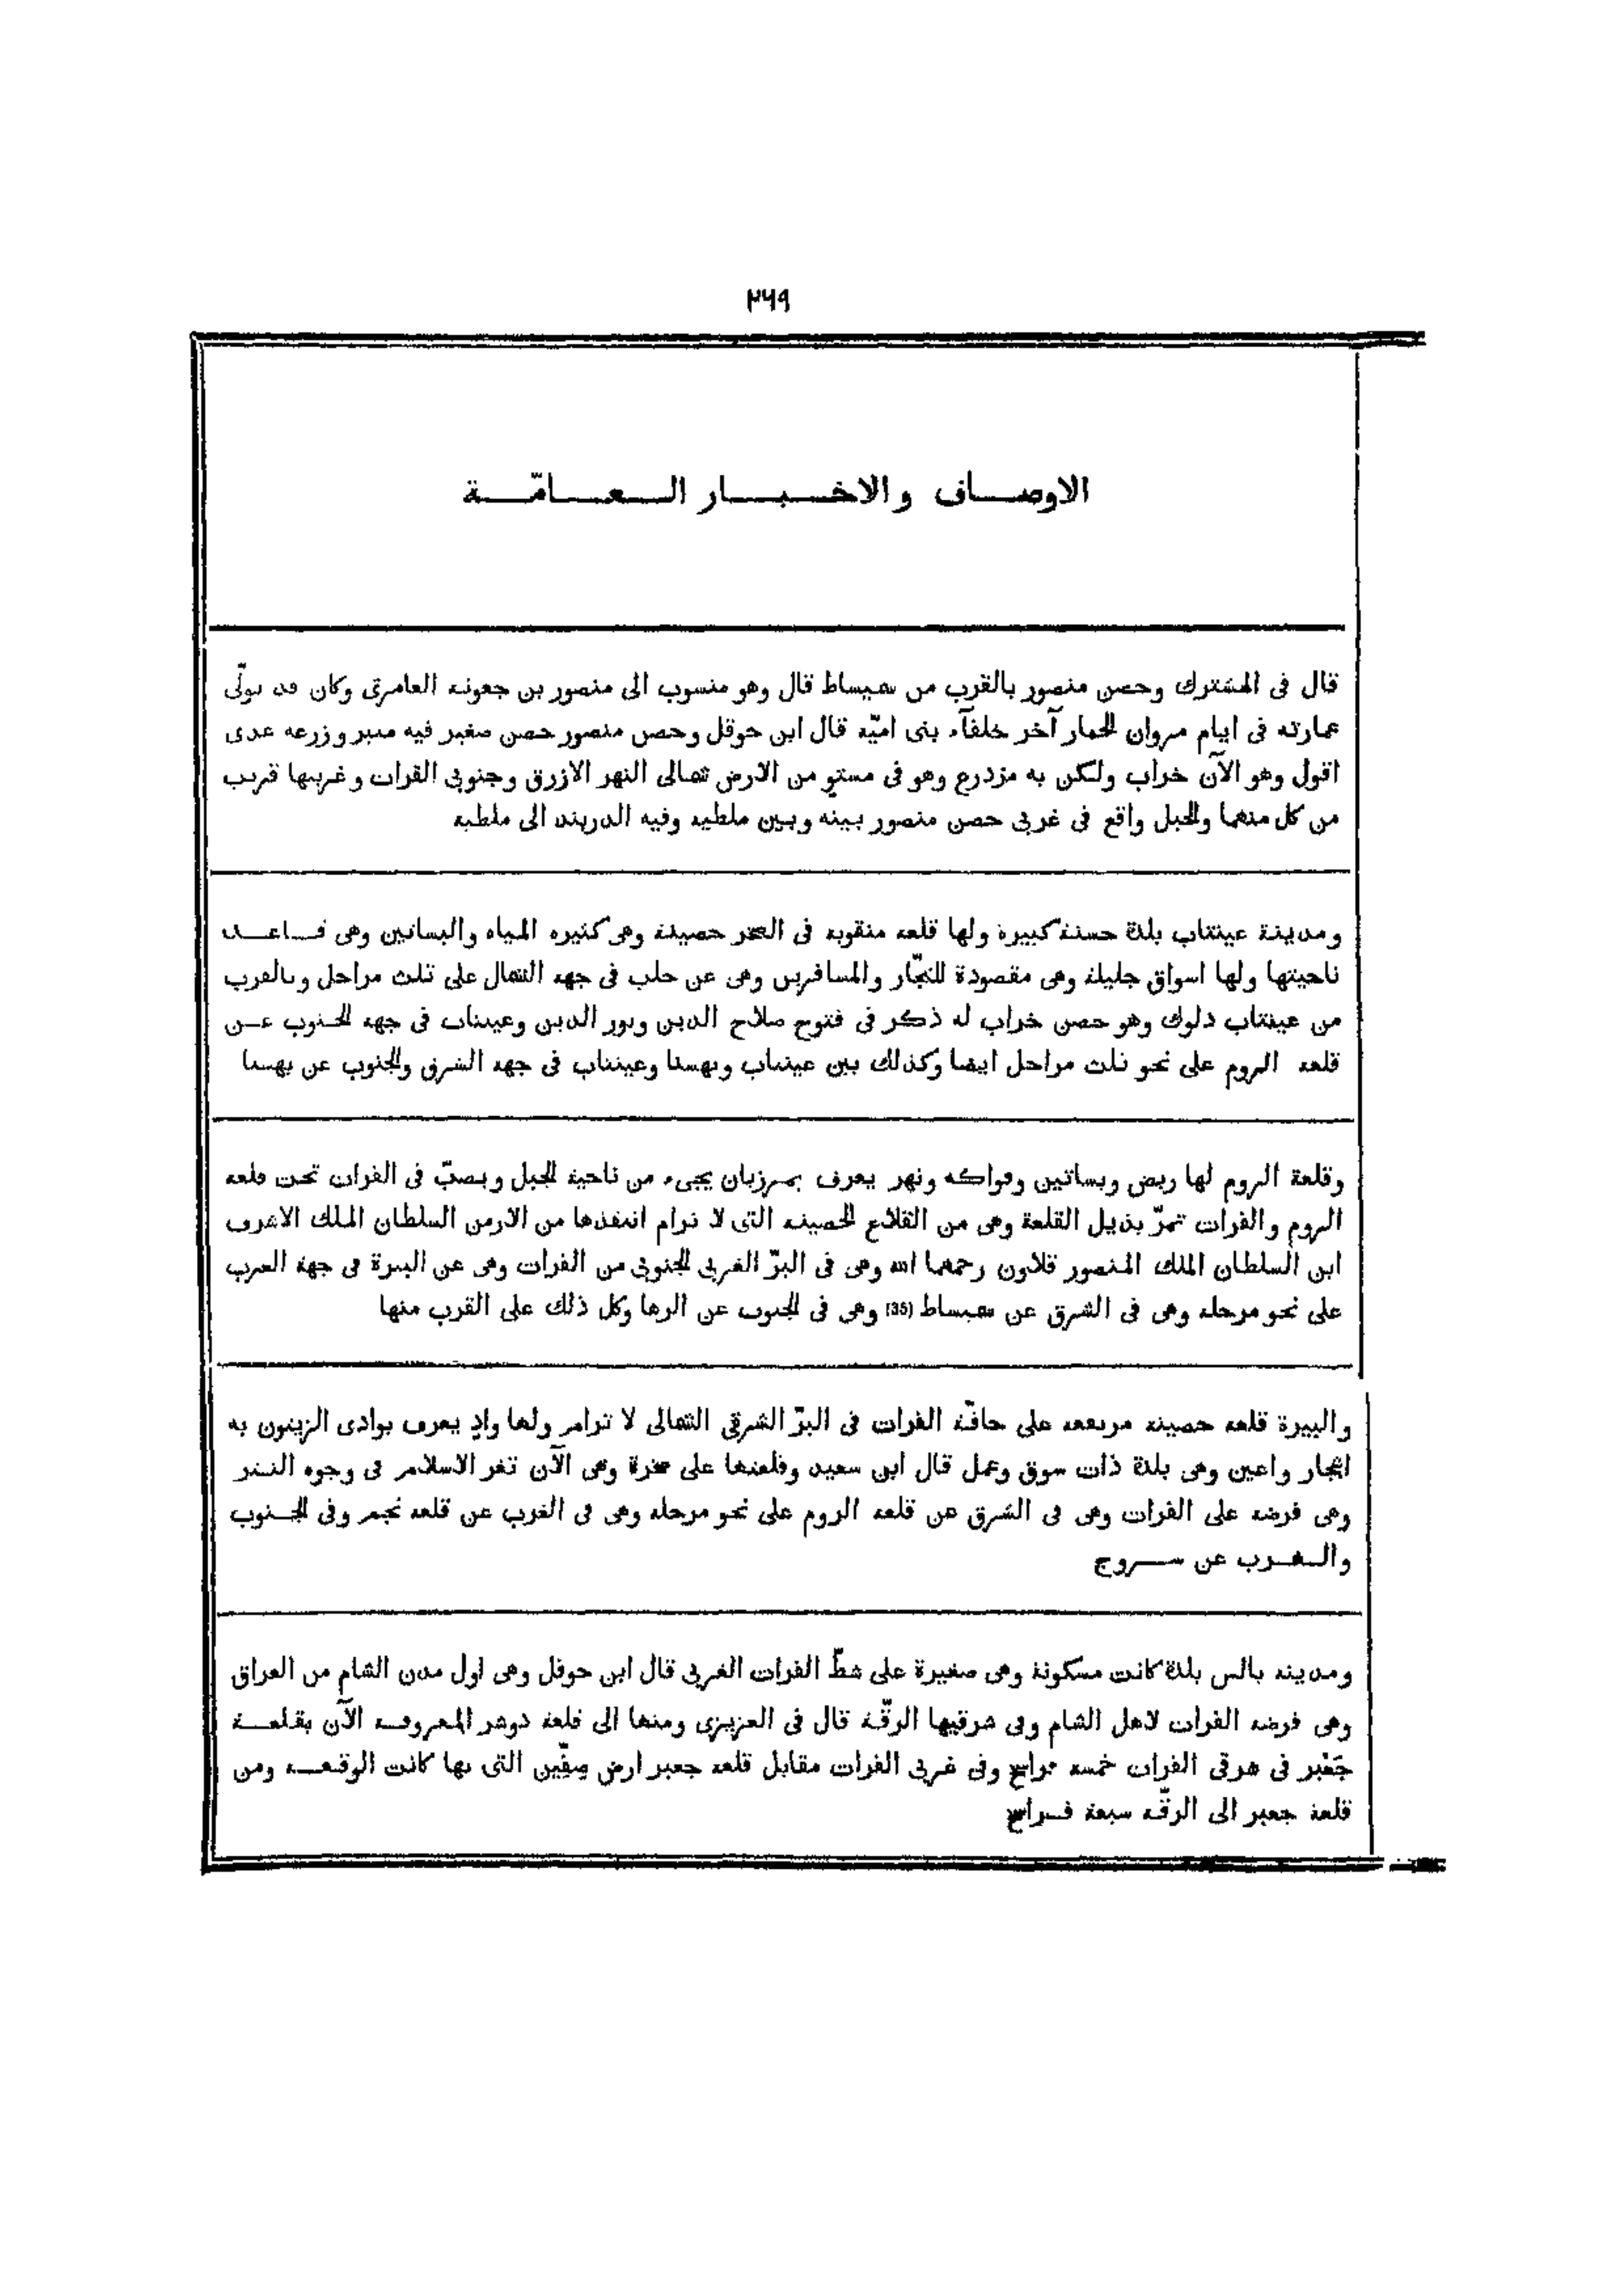 ٢٦٩
الاوصاف والاخبار العامّة
قال فى المشترك وحصن منصور بالقرب من سميساط قال وهو منسوب الى منصور بن جعونة العامرىّ وكان قد تولّى
عمارته فى ايام مروان الحمار آخر خلفآء بنى اميّة قال ابن حوقل وحصن منصور حصن صغير فيه منبر وزرعه عدى
اقول وهو الآن خراب ولكن به مزدرع وهو فى مستوٍ من الارض شمالى النهر الازرق وجنوبى الفرات وغربيها قريب
من كل منهما والجبل واقع فى غربى حصن منصور بينه وبين ملطية وفيه الدربند الى ملطية
ومدينة عينتاب بلدة حسنة كبيرة ولها قلعة منقوبة فى الصخر حصينة وهى كثيرة المياه والبساتين وهى قاعدة
ناحيتها ولها اسواق جليلة وهى مقصودة للتجّار والمسافرين وهى عن حلب فى جهة الشمال على ثلث مراحل وبالقرب
من عينتاب دلوك وهو حصن خراب له ذكر فى فتوح صلاح الدين ونور الدين وعينتاب فى جهة الجنوب عن
قلعة الروم على نحو ثلث مراحل ايضا وكذلك بين عينتاب وبهسنا وعينتاب فى جهة الشرق والجنوب عن بهسنا
وقلعة الروم لها ربض وبساتين وفواكه ونهر يعرف بمرزبان يجىء من ناحية الجبل ويصبّ فى الفرات تحت قلعة
الروم والفرات تمرّ بذيل القلعة وهى من القلاع الحصينة التى لا ترام انتقذها من الارمن السلطان الملك الاشرف
ابن السلطان الملك المنصور قلاون رحمهما الله وهى فى البرّ الغربى الجنوبى من الفرات وهى عن البيرة فى جهة الغرب
على نحو مرحلة وهى فى الشرق عن سميساط (35) وهى فى الجنوب عن الرها وكل ذلك على القرب منها
والبيرة قلعة حصينة مرتفعة على حافّة الفرات فى البرّ الشرقى الشمالى لا ترام ولها وادٍ يعرف بوادى الزيتون به
اشجار واعين وهى بلدة ذات سوق وعمل قال ابن سعيد وقلعتها على صخرة وهى الآن ثغر الاسلام فى وجوه التتر
وهى فرضة على الفرات وهى فى الشرق عن قلعة الروم على نحو مرحلة وهى فى الغرب عن قلعة نجم وفى الجنوب
والغرب عن سروج
ومدينة بالس بلدة كانت مسكونة وهى صغيرة على شطّ الفرات الغربى قال ابن حوقل وهى اول مدن الشام من العراق
وهى فرضة الفرات لاهل الشام وفى شرقيها الرقّة قال فى العزيزى ومنها الى قلعة دوشر المعروفة الآن بقلعة
جَعْبر فى شرقى الفرات خمسة فراسخ وفى غربى الفرات مقابل قلعة جعبر ارض صِفِّين التى بها كانت الوقعة ومن
قلعة جعبر الى الرقّة سبعة فراسخ